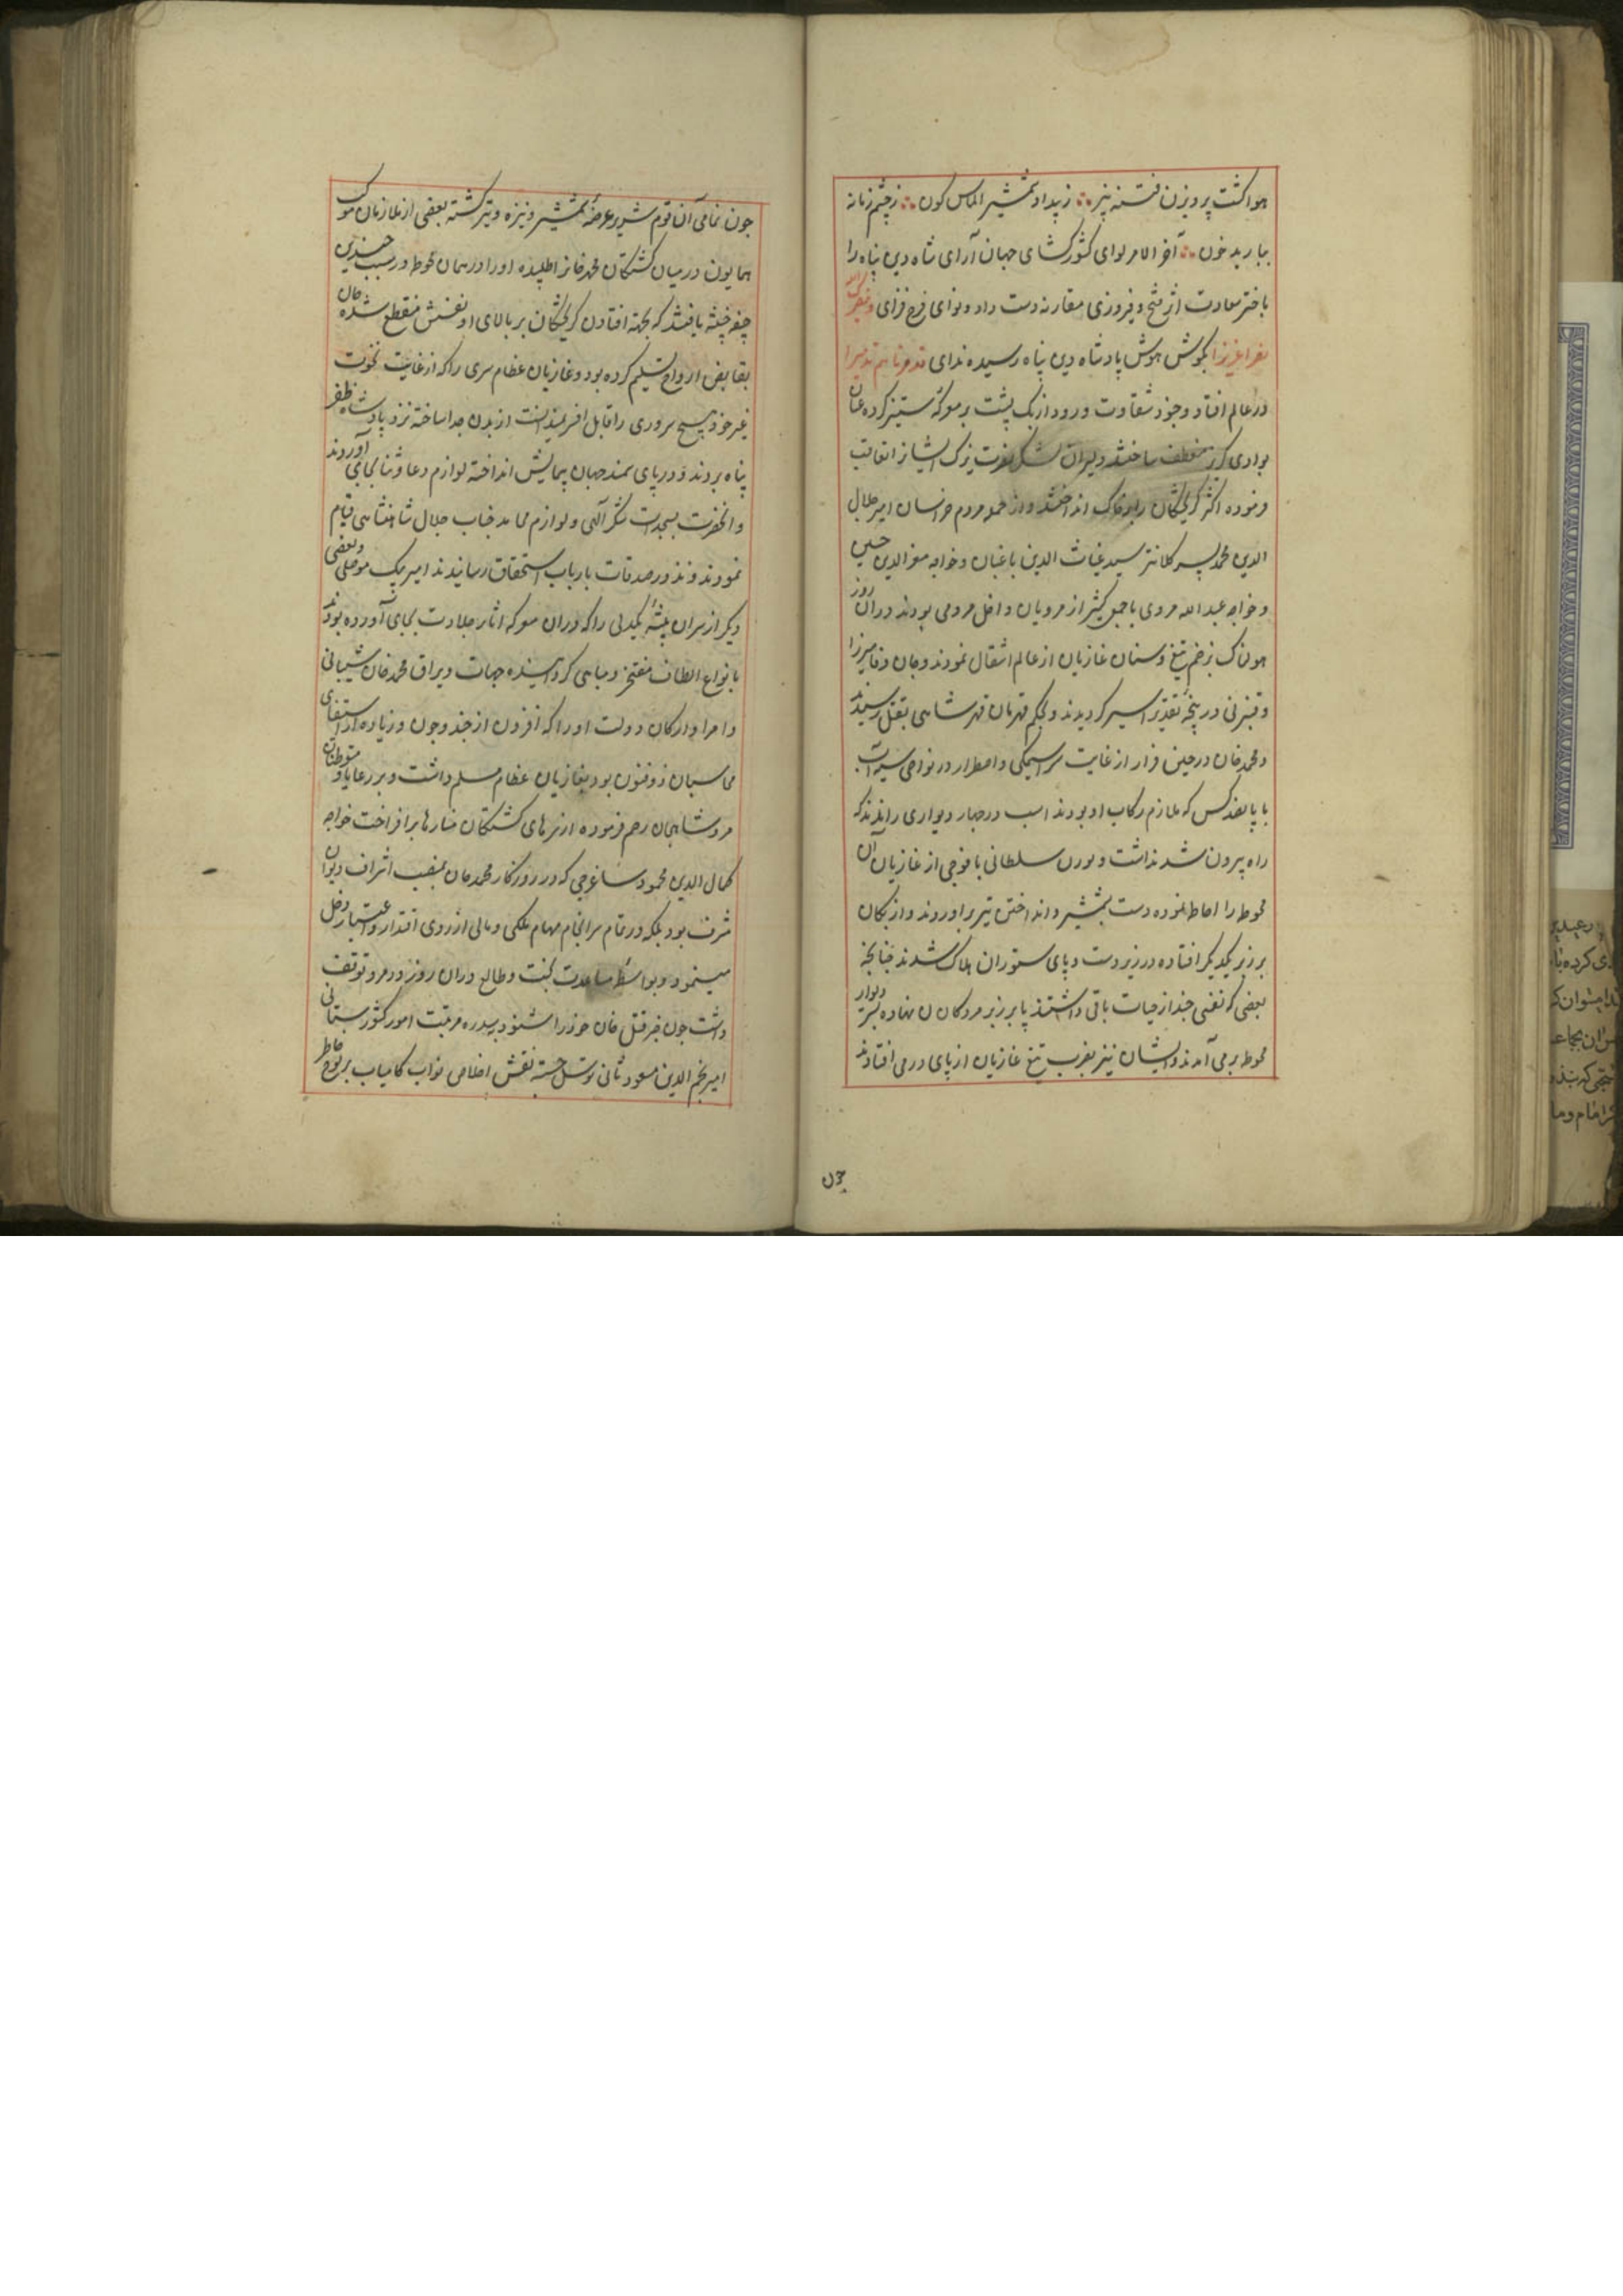 هوا کشت پرویزن فتنه بیز ∴ ز بیداد شمشیر الماس کون ∴ ز چشم زمانه
ببارید خون ∴ آخر الامر لوای کشورکشای جهان آرای شاه دین پناه را
باختر سعادت اثر فتح و فیروزی مقارنه دست داد و نوای فرح فزای وینصرک الله
نصرا عزیزا بکوش هوش پادشاه دین پناه رسیده ندای فدمرناهم تدمیرا
در عالم افتاد وجود شقاوت ورود ازبک پشت بر معرکه ستیز کرده عنان
بوادی کریز منعطف ساختند و دلیران لشکر نصرت یزک ایشانرا تعاقب
فرموده اکثر کریختکان را بر خاک انداختند و از جمله مردم خراسان امیر جلال
الدین محمد پسر کلانتر سید غیاث الدین باغبان و خواجه معز الدین حسین
و خواجه عبد الله مروی با جمعی کثیر از مرویان داخل مرومی بودند در آن روز
هولناک بزخم تیغ و سنان غازیان از عالم انتقال نمودند و جان وفا میرزا
و قنبر بی در پنجه تقدیر اسیر کردیدند و بحکم قهرمان قهر شاهی بقتل رسیدند
و محمد خان در حین فرار از غایت سراسیمکی و اضطرار در نواحی
با پانصد کس که ملازم رکاب او بودند اسب در چهار دیواری راندند که
راه بیرون شد نداشت و بورن سلطانی با فوجی از غازیان آن
محوطه را احاطه نموده دست بشمشیر و انداختن تیر براوردند و ازبکان
بر زبر یکدیکر افتاده در زیر دست و پای ستوران هلاک شدند چنانچه
بعضی که نفسی چند از حیات باقی داشتند پا بر زبر مردکان نهاده بسر دیوار
محوطه برمی آمدند و ایشان نیز بضرب تیغ غازیان از پای درمی افتادند
چون
چون تمامی آن قوم شریر عرضه شمشیر و نیزه و تیر کشته بعضی از ملازمان موکب
همایون در میان کشتکان محمد خانرا طلبیده او را در همان محوطه در سبب چندین
جیفه خبیثه یافتند که بجهة افتادن کریختکان بر بالای او نفسش منقطع شده جان
بقابض ارواح تسلیم کرده بود و غازیان عظام سری را که از غایت نخوت
غیر خود هیچ سروری را قابل افسر نمیدانست از بدن جدا ساخته نزد پادشاه ظفر
پناه بردند و در پای سمند جهان پیمایش انداخته لوازم دعا و ثنا بجای آوردند
و انحضرت بسجدات شکر آلهی و لوازم محامد جناب جلال شاهنشاهی قیام
نمودند و نذور صدقات بارباب استحقاق رسانیدند امیر بیک موصلی و بعضی
دیکر از سران بیشه یکدلی را که در ان معرکه اثار جلادت بجای آورده بودند
بانواع الطاف مفتخر و مباهی کردانیده جهات و یراق محمد خان شیبانی
و امرا و ارکان دولت او را که افزون از چند و چون و زیاده از استیفای
محاسبان ذوفنون بود بغازیان عظام مسلم داشت و بر رعایا و متوطنان
مرو شاهجان رحم فرموده از سرهای کشتکان منارها برافراخت خواجه
کمال الدین محمود ساغرجی که در روزکار محمد خان بمنصب اشراف دیوان
مشرف بود بلکه در تمام سرانجام مهام ملکی و مالی از روی اقتدار و اعتبار دخل
مینمود و بواسطه مساعدت بخت و طالع در ان روز در مرو توقف
داشت چون خبر قتل خان خود را شنود بسده مرتبت امور کشورستانی
امیر نجم الدین مسعود ثانی توسل جسته نقش اخلاص نواب کامیاب بر لوح خاطر